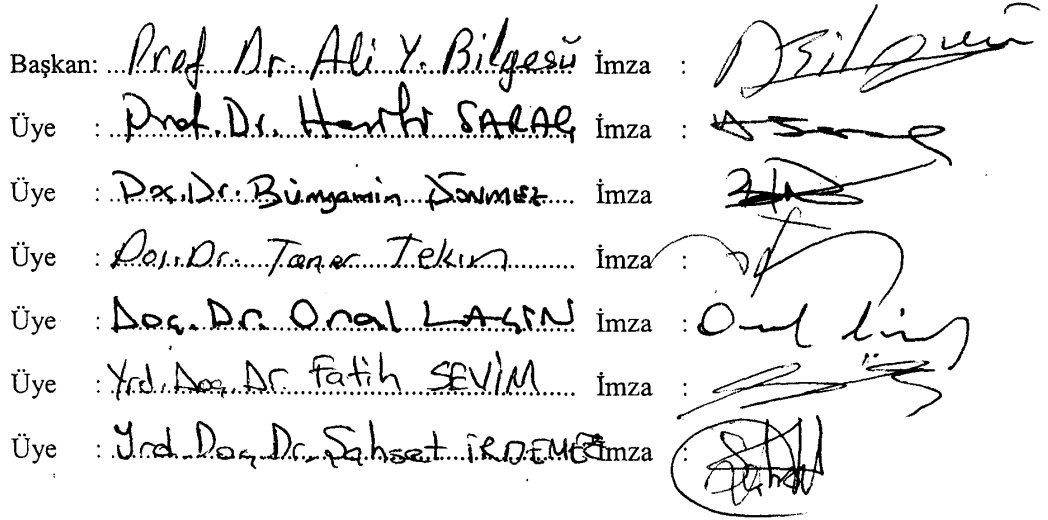 Başkan: Prof Dr. Ali Y. Bilgesü İmza :
Üye : Prof. Dr. Hanifi SARAÇ İmza :
Üye : Doç. Dr. Bünyamin DÖNMEZ İmza :
Üye : Doç. Dr. Taner Tekin İmza :
Üye : Doç. Dr. Onal LAÇİN İmza :
Üye : Yrd. Doç. Dr. Fatih SEVİM İmza :
Üye : Yrd. Doç. Dr. Şahset İRDEMEZ İmza :